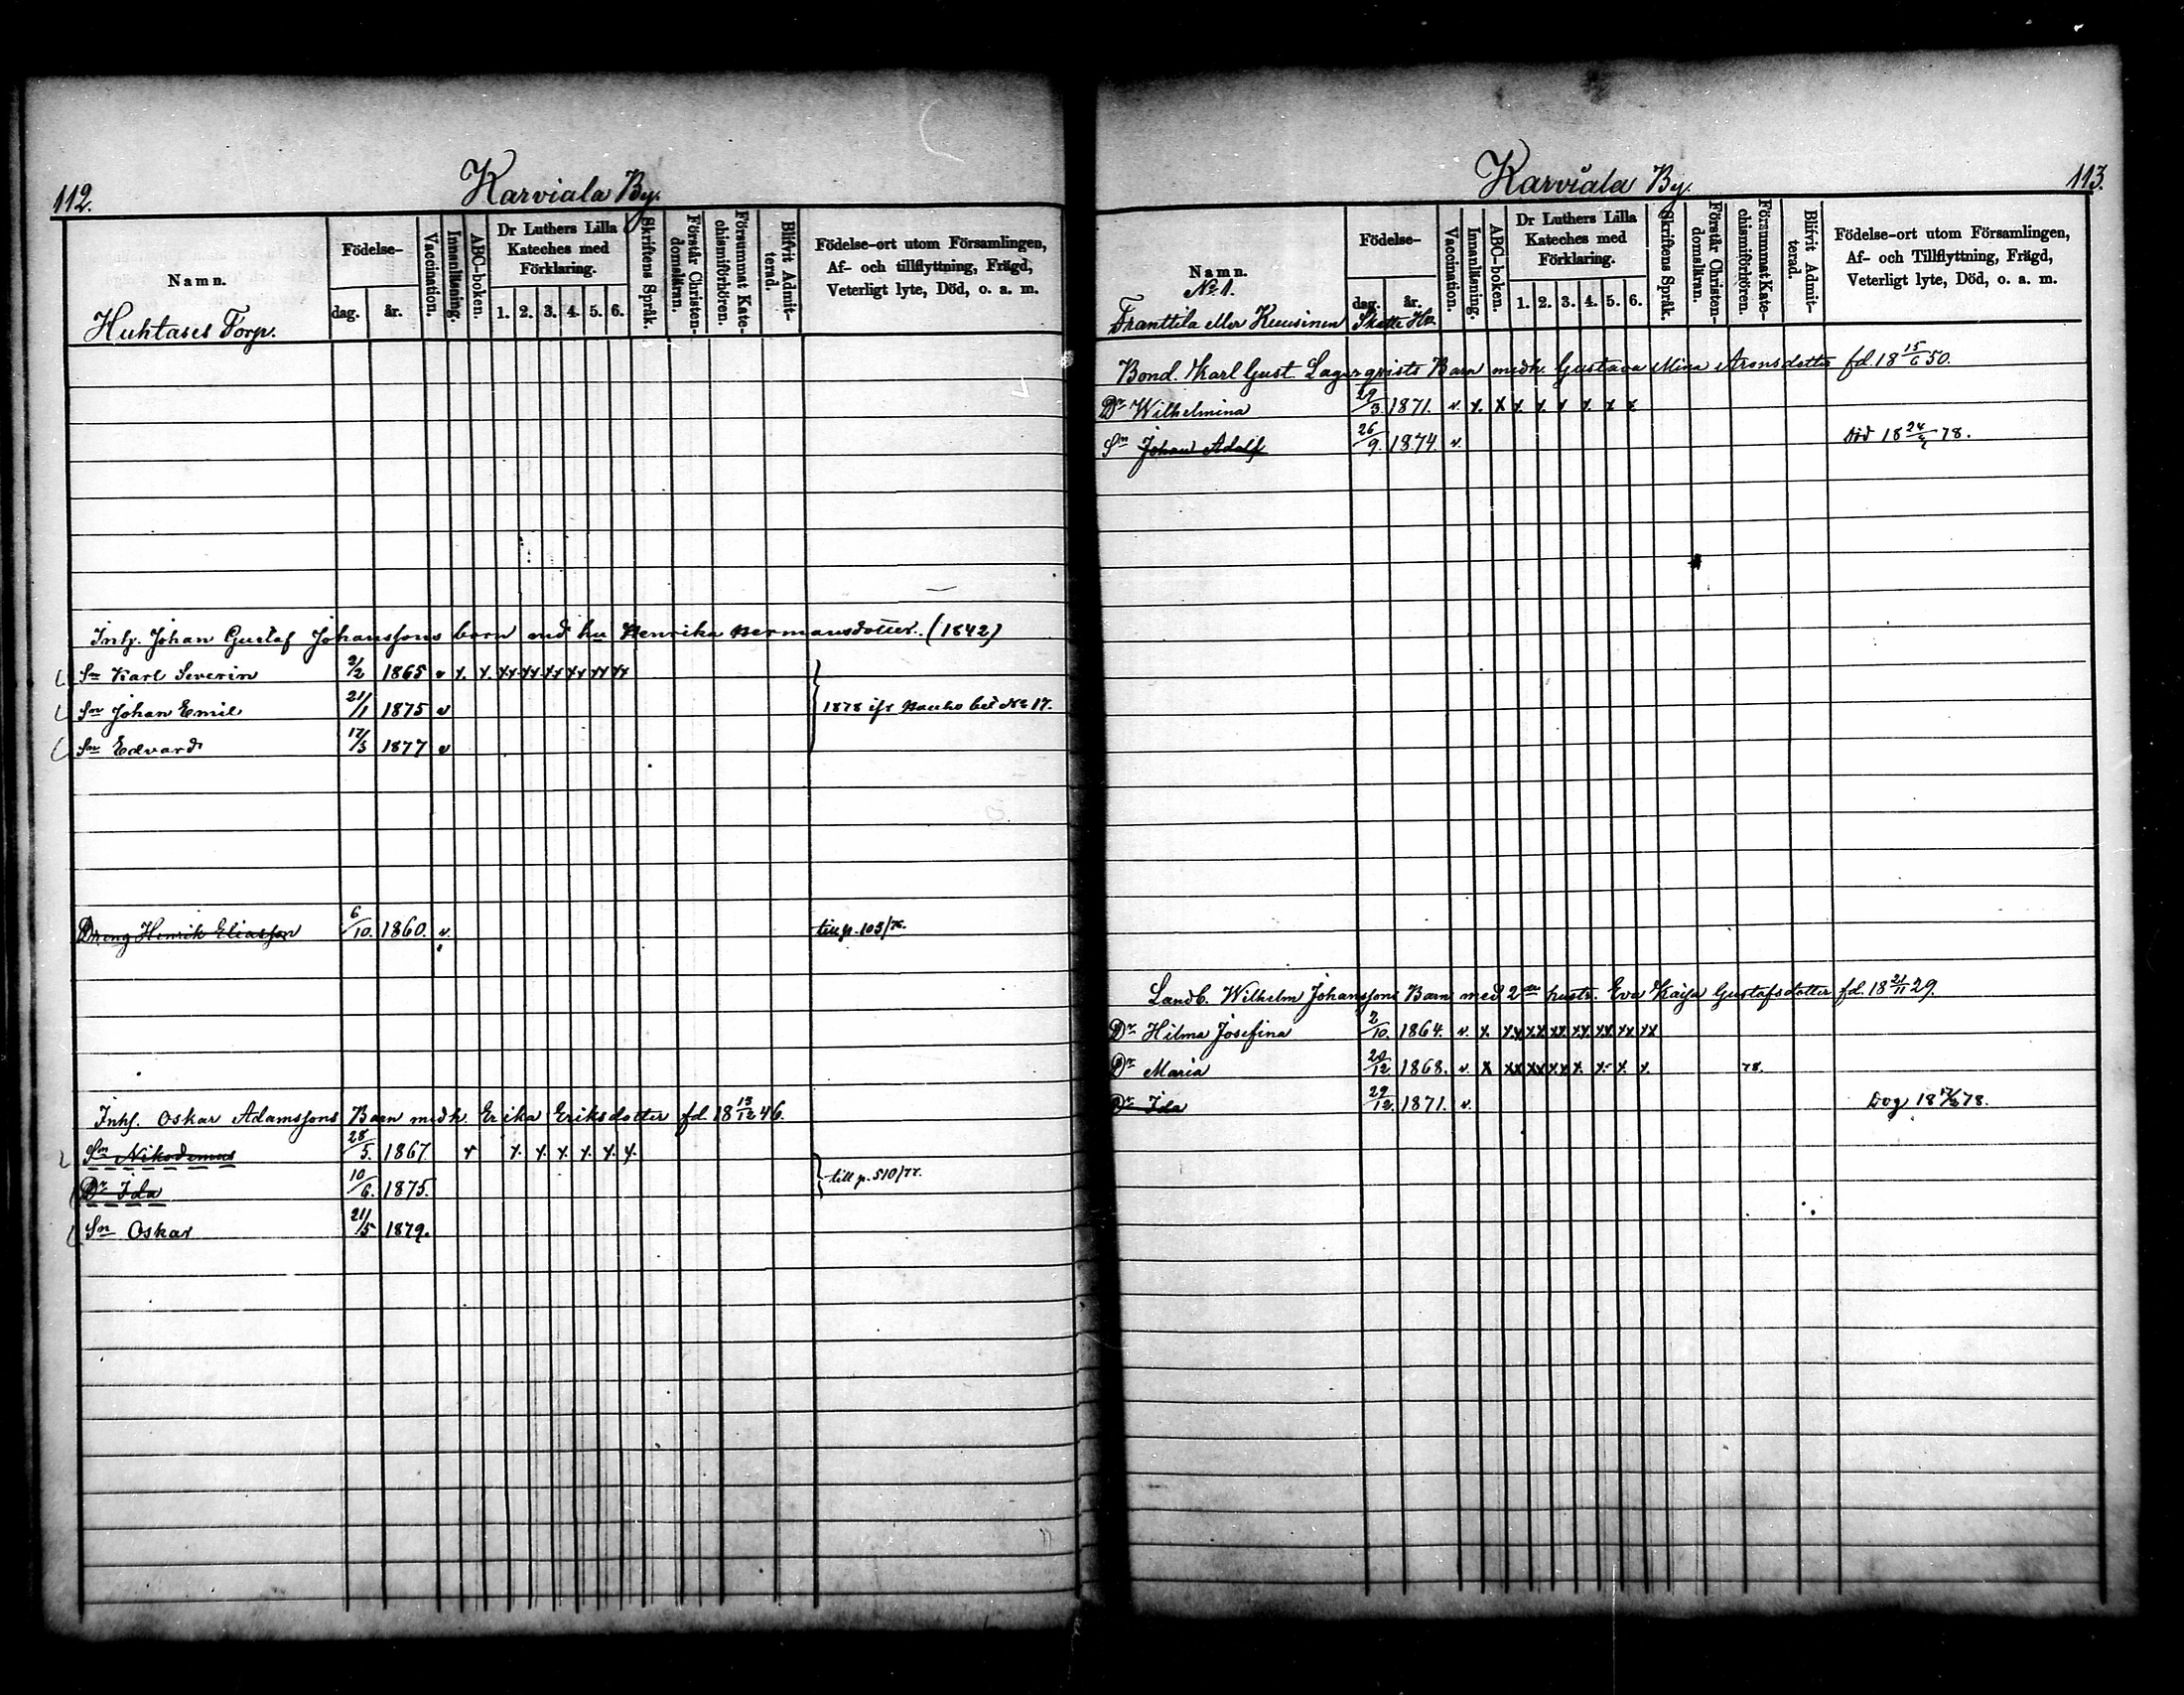 112.
Karviala By.
Namn.
Huhtases Torp.
Födelse-
dag.
år.
Vaccination.
Innanläsning.
ABC-boken.
Dr Luthers Lilla
Kateches med
Förklaring.
1. 2. 3. 4. 5. 6.
Skriftens Språk.
Förstår Christen-
domsläran.
Försummat Kate-
chismiförhören.
Blifvit Admit-
terad.
Födelse-ort utom Församlingen,
Af- och tillflyttning, Frägd,
Veterligt lyte, Död, o. a. m.
Inhs. Johan Gustaf Johanssons barn med hu Henrika Hermansdotter. (1842)
Sn Karl Severin 2/2 1865 v x. x. xx xx xx xx xx xx
Sn Johan Emil 21/1 1875 v 1878 No 17.
Sn Edvard 17/3 1877 v
Dreng Henrik Eliasson 6/10. 1860. v. till p. 103/76.
Inhs. Oskar Adamssons Barn med h. Erika Eriksdotter fd. 18 13/12 46.
Sn Nikodemus 28/5. 1867. v x. x. x. x. x. x.
Dr Ida 10/6. 1875. till p. 510/77.
Sn Oskar 21/5 1879.
113.
Karviala By.
Namn.
No 1.
Franttila eller Kuusinen Skatte Hn
Födelse-
dag.
år.
Vaccination.
Innanläsning.
ABC-boken.
Dr Luthers Lilla
Kateches med
Förklaring.
1. 2. 3. 4. 5. 6.
Skriftens Språk.
Förstår Christen-
domsläran.
Försummat Kate-
chismiförhören.
Blifvit Admit-
terad.
Födelse-ort utom Församlingen,
Af- och Tillflyttning, Frägd,
Veterligt lyte, Död, o. a. m.
Bond. Karl Gust. Lagerqvists Barn med h. Gustava Mina Aronsdotter fd. 18 15/6 50.
Dr Wilhelmina 29/3. 1871. v. x. x x. x. x x. x. x.
Sn Johan Adolf 26/9. 1874. v. Död 18 24/2 78.
Landb. Wilhelm Johanssons Barn med 2dra hustr. Eva Kaisa Gustafsdotter fd. 18 21/11 29.
Dr Hilma Josefina 2/10. 1864. v. x. xx xx. xx. xx. xx. xx xx
Dr Maria 20/12 1868. v. x xx xx xx x. x. x. x. 78.
Dr Ida 29/12. 1871. v. Dog 18 78.